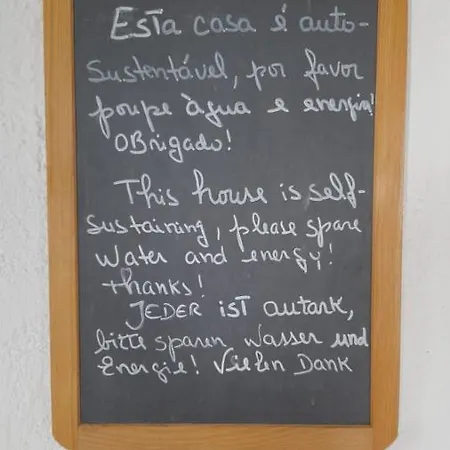 Esta casa é auto-
sustentável, por favor
poupe àgua e energia!
OBrigado!
This house is self-
sustaining, please spare
water and energy!
thanks!
JEDER iST autark,
bitte sparen Wasser und
Energie! Vielen Dank